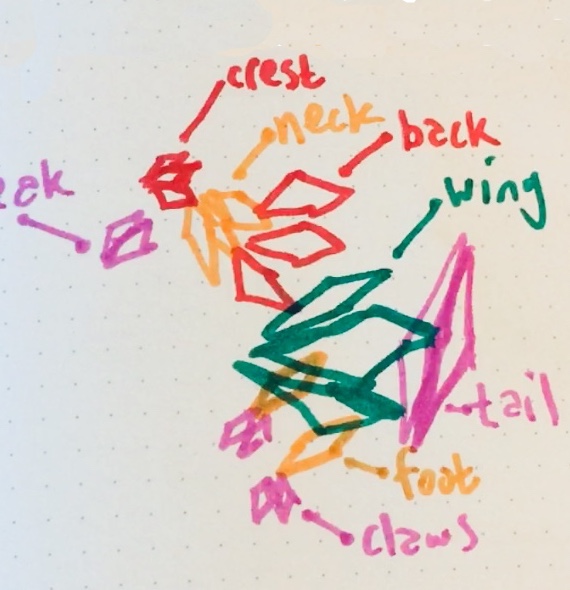 crest
neck
back
wing
tail
foot
claws